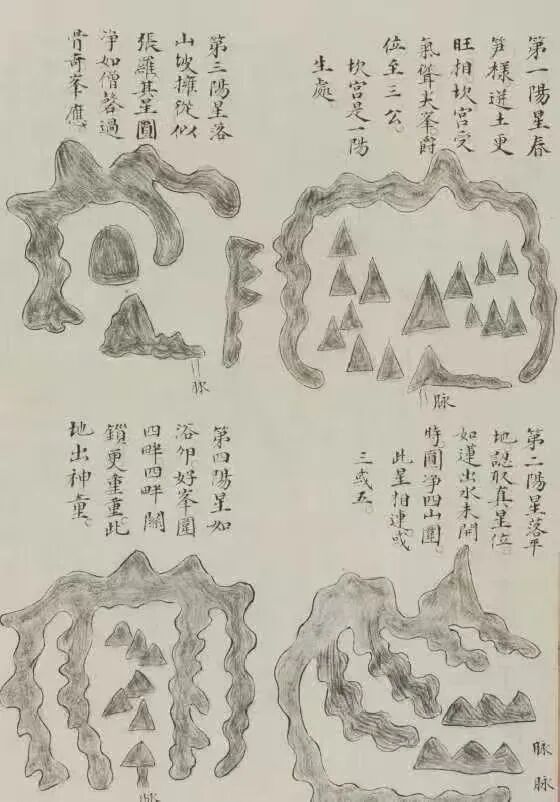 第一陽星春
笋樣迸土更
旺相坎宮受
氣聳尖峯爵
位至三公。
坎宮是一陽
生處
脉
第二陽星落平
地認取真星位。
如蓮出水未開
時。圓淨四山圍。
此星相連或
三或五。
脉
脉
第三陽星落
山坡擁從似
張羅其星圓
淨如僧
過
骨奇峯應。
脉
第四陽星如
浴卵好峯圍
四畔四畔關
鎖更重重此
地出神童。
脉